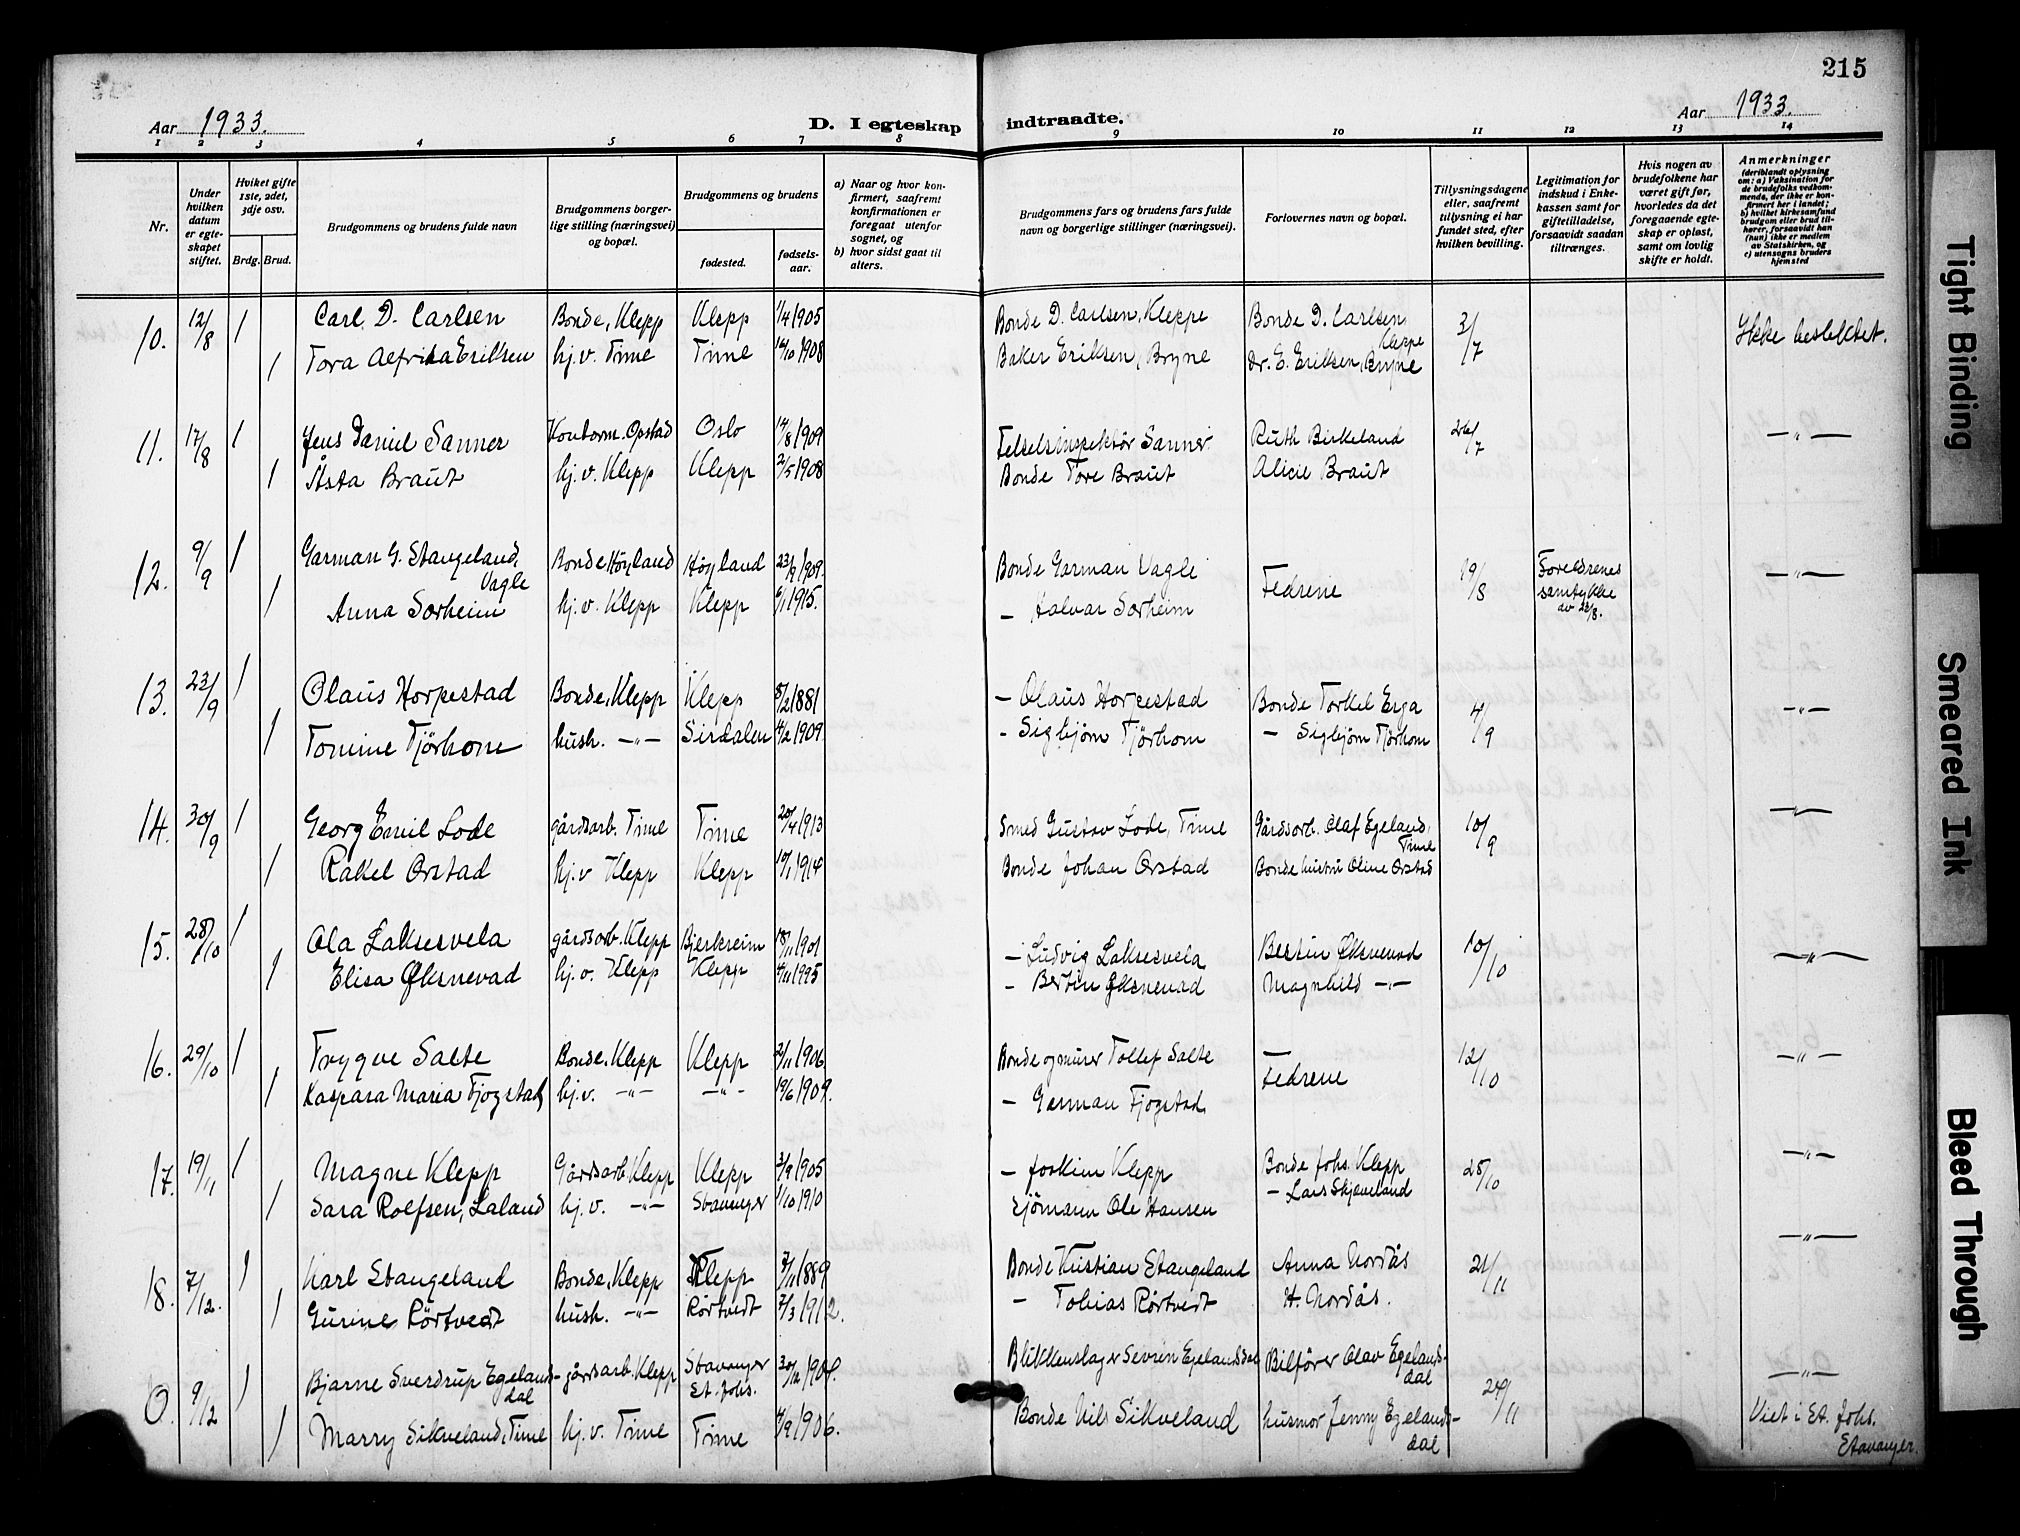 215
Aar 1933.
D. I egteskap indtraadte.
Aar 1933.
1 2 3 4 5 6 7 8 9 10 11 12 13 14
Nr.
Under hvilken datum er egteskapet stiftet.
Hviket gifte 1ste, 2det, 3dje osv.
Brdg. Brud.
Brudgommens og brudens fulde navn
Brudgommens borgerlige stilling (næringsvei) og bopæl.
Brudgommens og brudens
fødested.
fødselsaar.
a) Naar og hvor konfirmert, saafremt konfirmationen er foregaat utenfor sognet, og
b) hvor sidst gaat til alters.
Brudgommens fars og brudens fars fulde navn og borgerlige stillinger (næringsvei).
Forlovernes navn og bopæl.
Tillysningsdagene eller, saafremt tillysning ei har fundet sted, efter hvilken bevilling.
Legitimation for indskud i Enkekassen samt for giftetilladelse, forsaavidt saadan tiltrænges.
Hvis nogen av brudefolkene har været gift før, hvorledes da det foregaaende egteskap er opløst, samt om lovlig skifte er holdt.
Anmerkninger
(deriblandt oplysning om: a) Vaksination for de brudefolks vedkommende, der ikke er konfirmert her i landet; b) hvilket kirkesamfund brudgom eller brud tilhører, forsaavidt han (hun) ikke er medlem av Statskirken, og c) utensogns bruders hjemsted
10. 12/8 1 Carl. D. Carlsen Bonde, Klepp Klepp 1/4 1905 Bonde D. Carlsen, Kleppe Bonde D. Carlsen Kleppe 3/7 Ikke beslektet.
1 Tora Alfrida Eriksen hj.v. Time Time 16/10 1908 Baker Eriksen, Bryne Dr. E. Eriksen, Bryne
11. 17/8 1 Jens Daniel Sanner Kontorm. Opstad Oslo 14/8 1909 Felselsinspektör Sanner Ruth Birkeland 26/7 —"—
1 Åsta Braut hj.v. Klepp Klepp 2/5 1908 Bonde Tore Braut Alicie Braut
12. 9/9 1 Garman G. Stangeland, Vagle Bonde Høyland Høyland 23/9 1909. Bonde Garman Vagle Fedrene 19/8 Foreldrenes samtykke av 22/8. —"—
1 Anna Sørheim hj.v. Klepp Klepp 6/1 1915. — Halvar Sørheim
13. 23/9 1 Olaus Horpestad Bonde, Klepp Klepp 8/2 1881 — Olaus Horpestad Bonde Torkel Erga 4/9 —"—
1 Tomine Tjörhom hush. —"— Sirdalen 4/2 1909 - Sigbjörn Tjörhom — Sigbjörn Tjörhom
14. 30/9 1 Georg Emil Lode gårdsarb. Time Time 20/4 1913 Smed Gustav Lode, Time Gårdsarb. Olaf Egeland, Time 10/9 —"—
1 Rakel Orstad hj.v Klepp Klepp 10/1 1914 Bonde Johan Orstad Bonde hustru Oline Orstad
15. 28/10 1 Ola Laksesvela gårdsarb. Klepp Bjerkreim 18/11 1901 — Ludvig Laksesvela Bertin Øksnevad 10/10 —"—
1 Elisa Øksnevad hj.v. Klepp Klepp 4/11 1995 — Bertin Øksnevad Magnhild —"—
16. 29/10 1 Trygve Salte Bonde, Klepp Klepp 2/11 1906 Bonde og murer Tollef Salte Fedrene 12/10 —"—
1 Kaspara Maria Fjogstad hj.v. —"— —"— 19/6 1909. — Garman Fjogstad
17. 19/11 1 Magne Klepp Gårdsarb. Klepp Klepp 3/9 1905 — Joakim Klepp Bonde Johs. Klepp 25/10 —"—
1 Sara Rolfsen, Laland hj.v. —"— Stavanger 1/10 1910 Sjömann Ole Hansen — Lars Skjæveland
18. 7/12. 1 Karl Stangeland Bonde, Klepp Klepp 7/11 1889 Bonde Kristian Stangeland Anna Nordås 21/11 —"—
1 Gurine Rörtvedt hush. —"— Rörtvedt 7/3 1912. — Tobias Rörtvedt H. Nordås.
0. 9/12 1 Bjarne Sverdrup Egelandsdal gårdsarb. Klepp Stavanger St. Johs. Blikkenslager Sevrin Egelandsdal Bilförer Olav Egelandsdal 24/11 —"—
1 Marry Sikveland, Time hj.v. Time Time 4/9 1906. Bonde Nils Sikveland husmor Jenny Egelandsdal Viet i St. Johs. Stavanger.
Tight Binding
Smeared Ink
Bleed Through